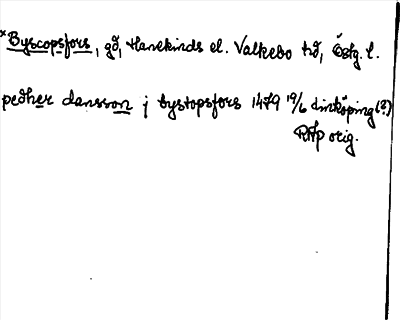 *Byscopsfors, gd, Hanekinds el. Valkebo hd, Östg. l.
pedher dansson j bystopsfors 1479 19/6 Linköping (?)
RAp orig.